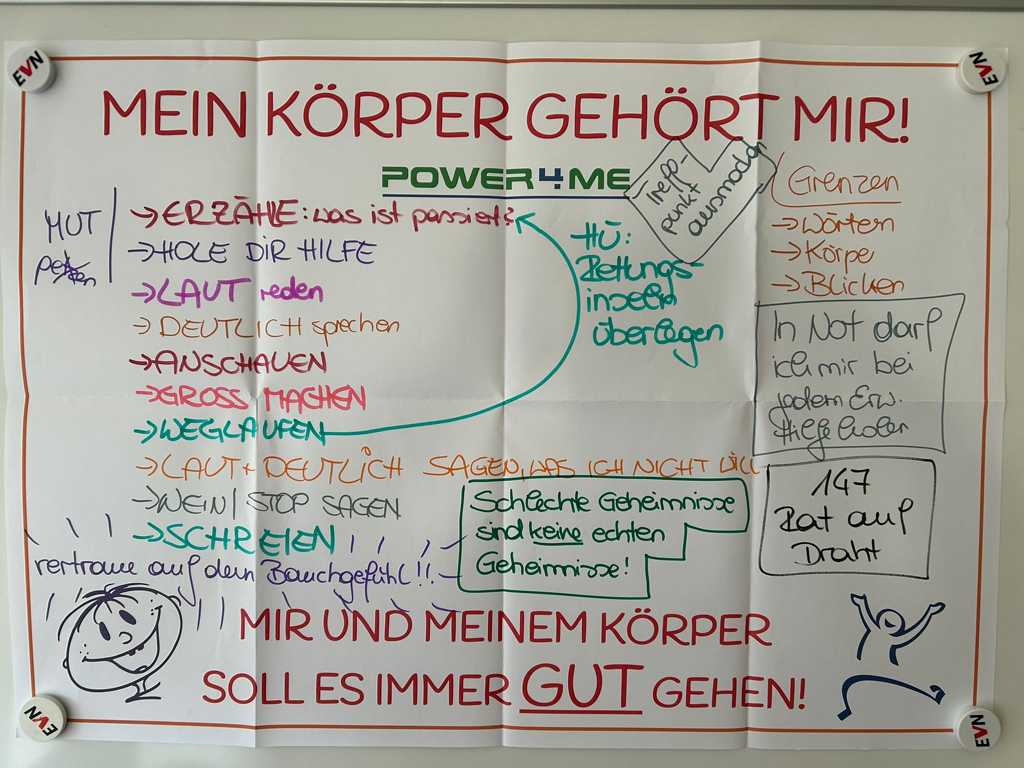 EVN
EVN
MEIN KÖRPER GEHÖRT MIR!
POWER4ME
MUT
→ ERZÄHLE: was ist passiert?
→ HOLE DIR HILFE
→ LAUT reden
→ DEUTLICH sprechen
→ ANSCHAUEN
→ GROSS MACHEN
→ WEGLAUFEN
→ LAUT + DEUTLICH SAGEN, WAS ICH NICHT WILL
→ NEIN / STOP SAGEN
→ SCHREIEN
vertraue auf dein Bauchgefühl!!
HÜ:
Rettungs-
inseln
überlegen
Treff-
punkt
ausmachen
Grenzen
→ Wörtern
→ Körpe
→ Blicken
In Not darf
ich mir bei
jedem Erw.
Hilfe holen
Schlechte Geheimnisse
sind keine echten
Geheimnisse!
147
Rat auf
Draht
MIR UND MEINEM KÖRPER
SOLL ES IMMER GUT GEHEN!
EVN
EVN